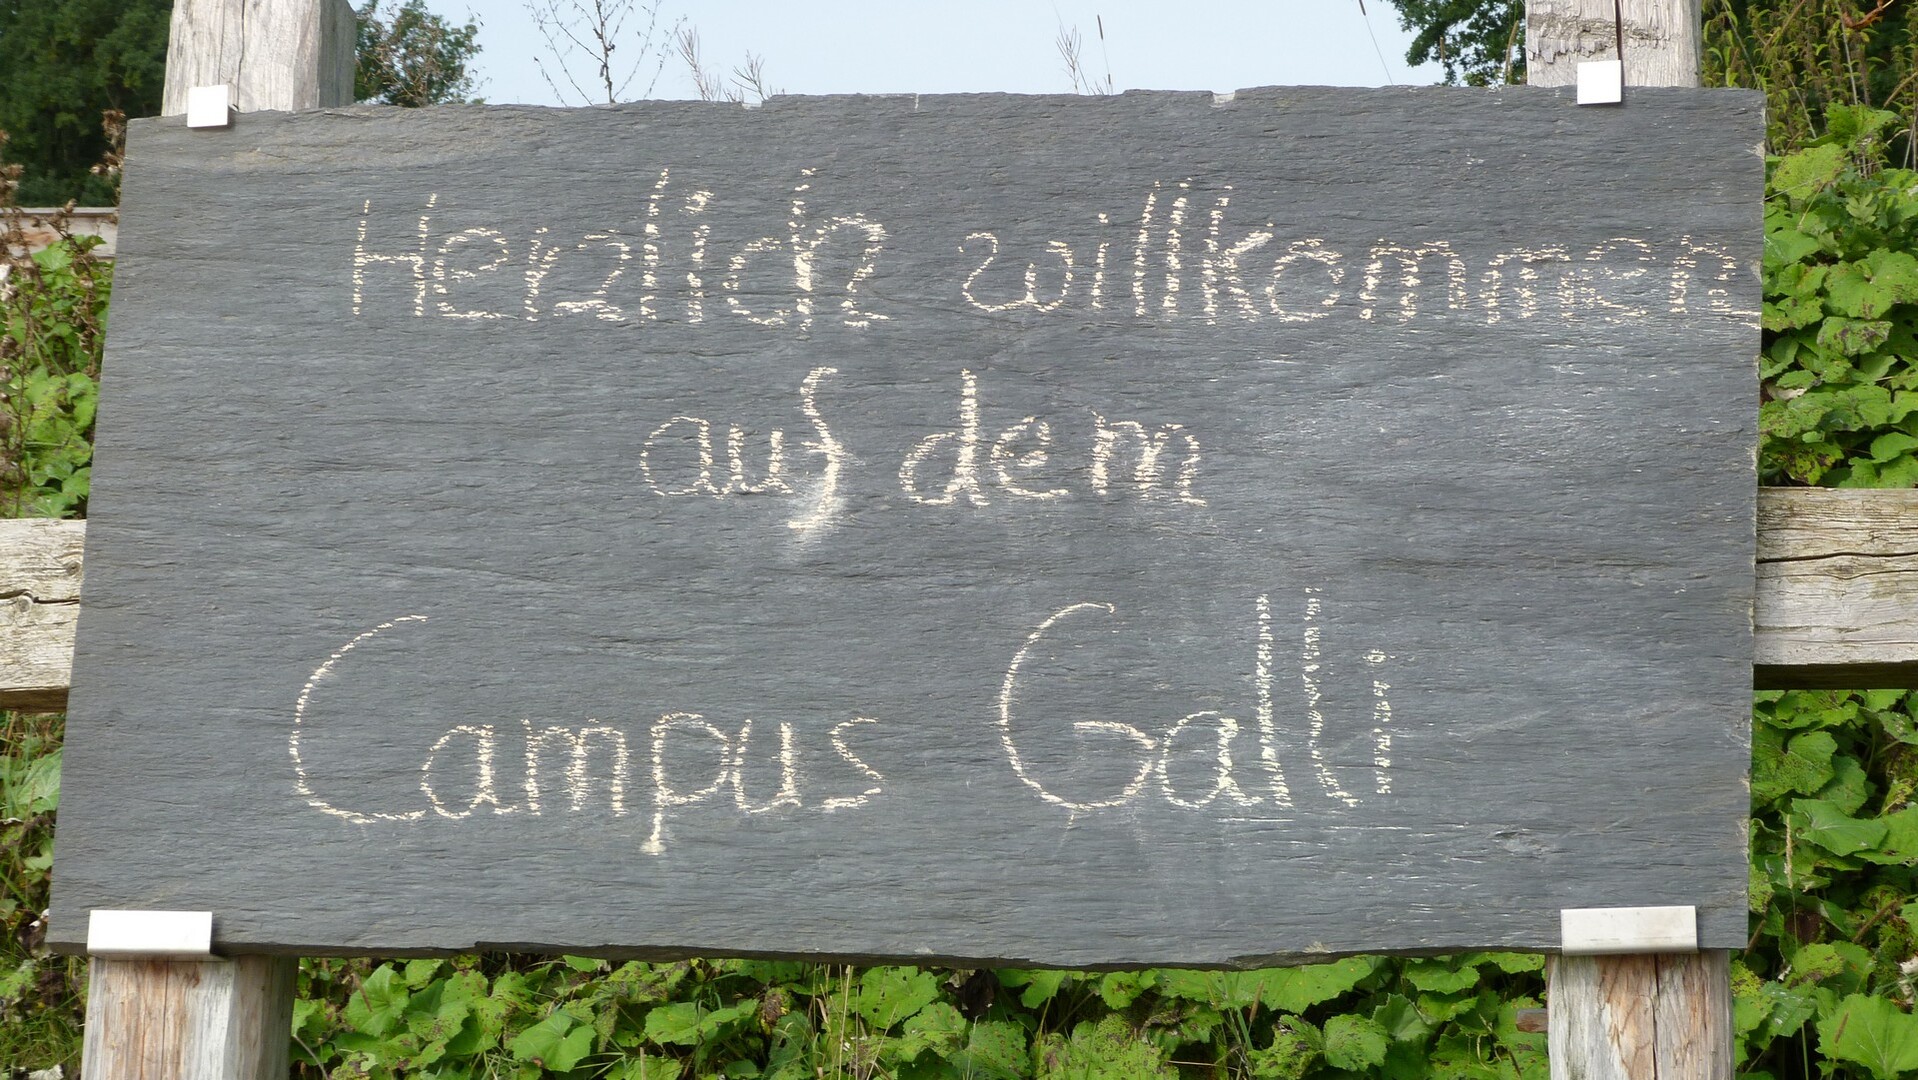 Herzlich willkommen
auf dem
Campus Galli